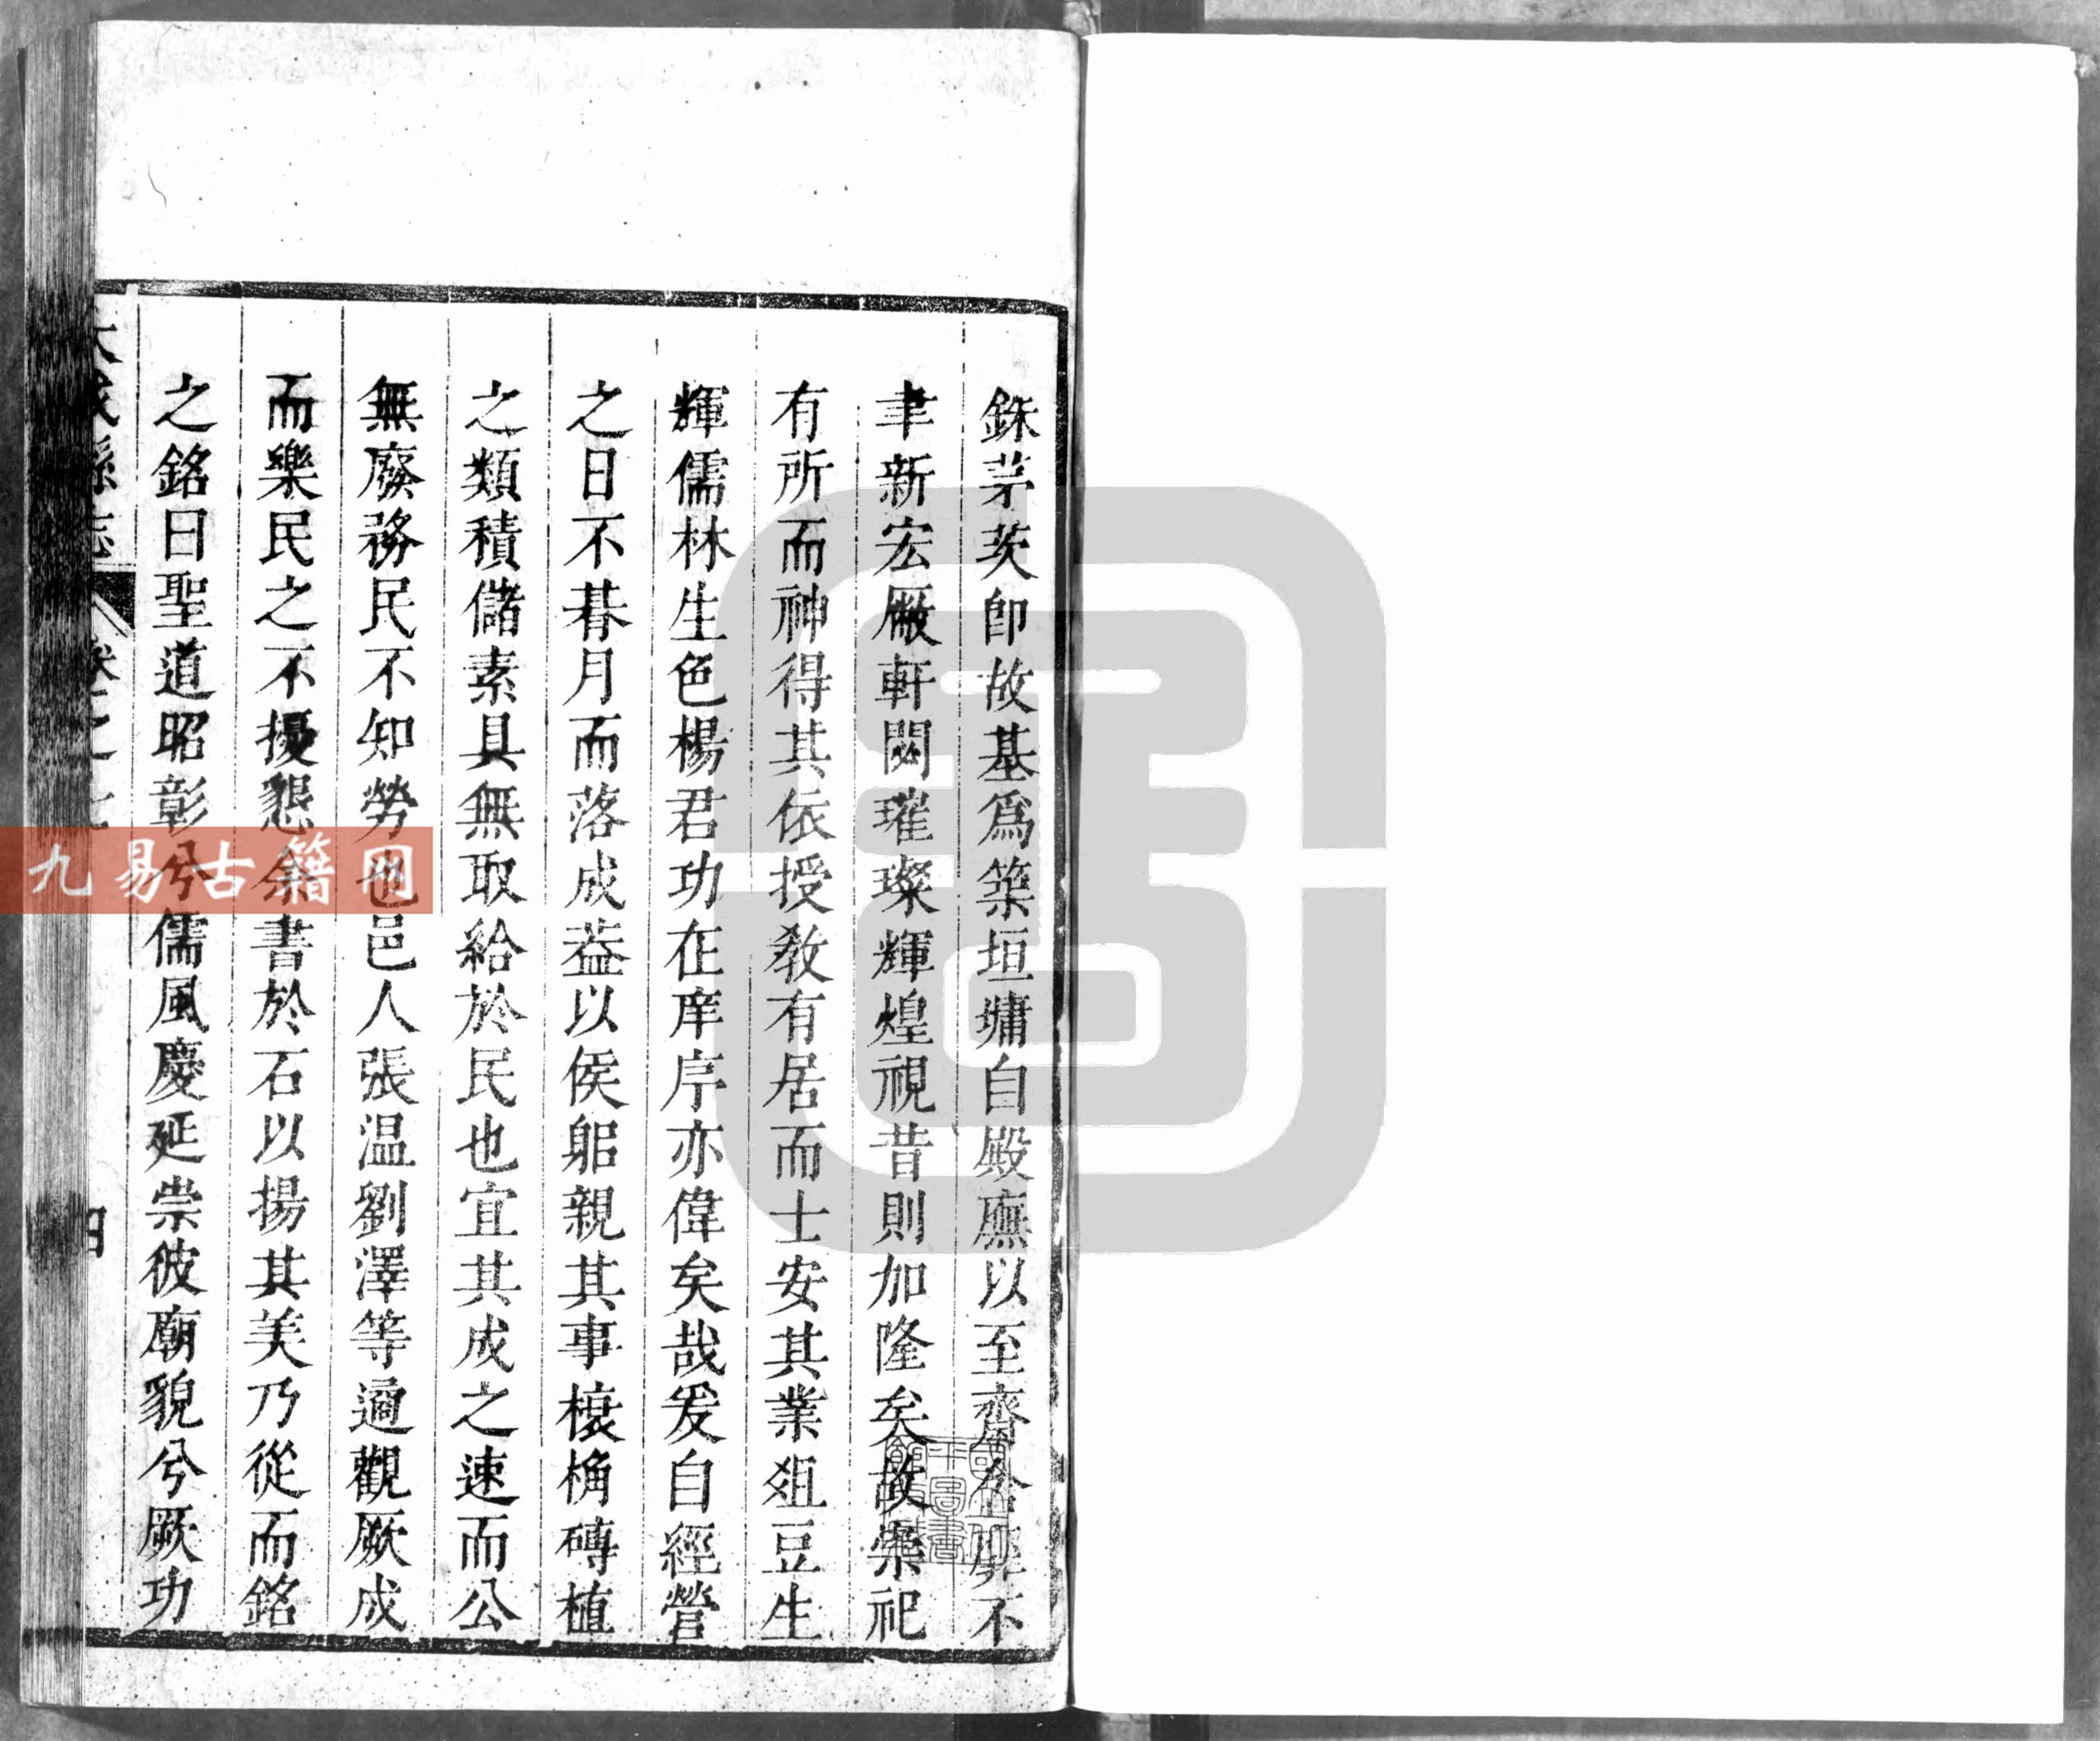 銖茅茨卽故基爲築垣墉自殿廡以至齋舍靡不
聿新宏厰軒闊璀璨輝煌視昔則加隆矣故崇祀
有所而神得其依授教有居而士安其業俎豆生
輝儒林生色楊君功在庠序亦偉矣哉爰自經營
之日不朞月而落成葢以侯躬親其事榱桷磚植
之類積儲素具無取給於民也宜其成之速而公
無廢務民不知勞也邑人張温劉澤等適觀厥成
而樂民之不擾懇余書於石以揚其美乃從而銘
之銘曰聖道昭彰兮儒風慶延崇彼廟貌兮厥功
大城縣志 卷之七
四
九易古籍网